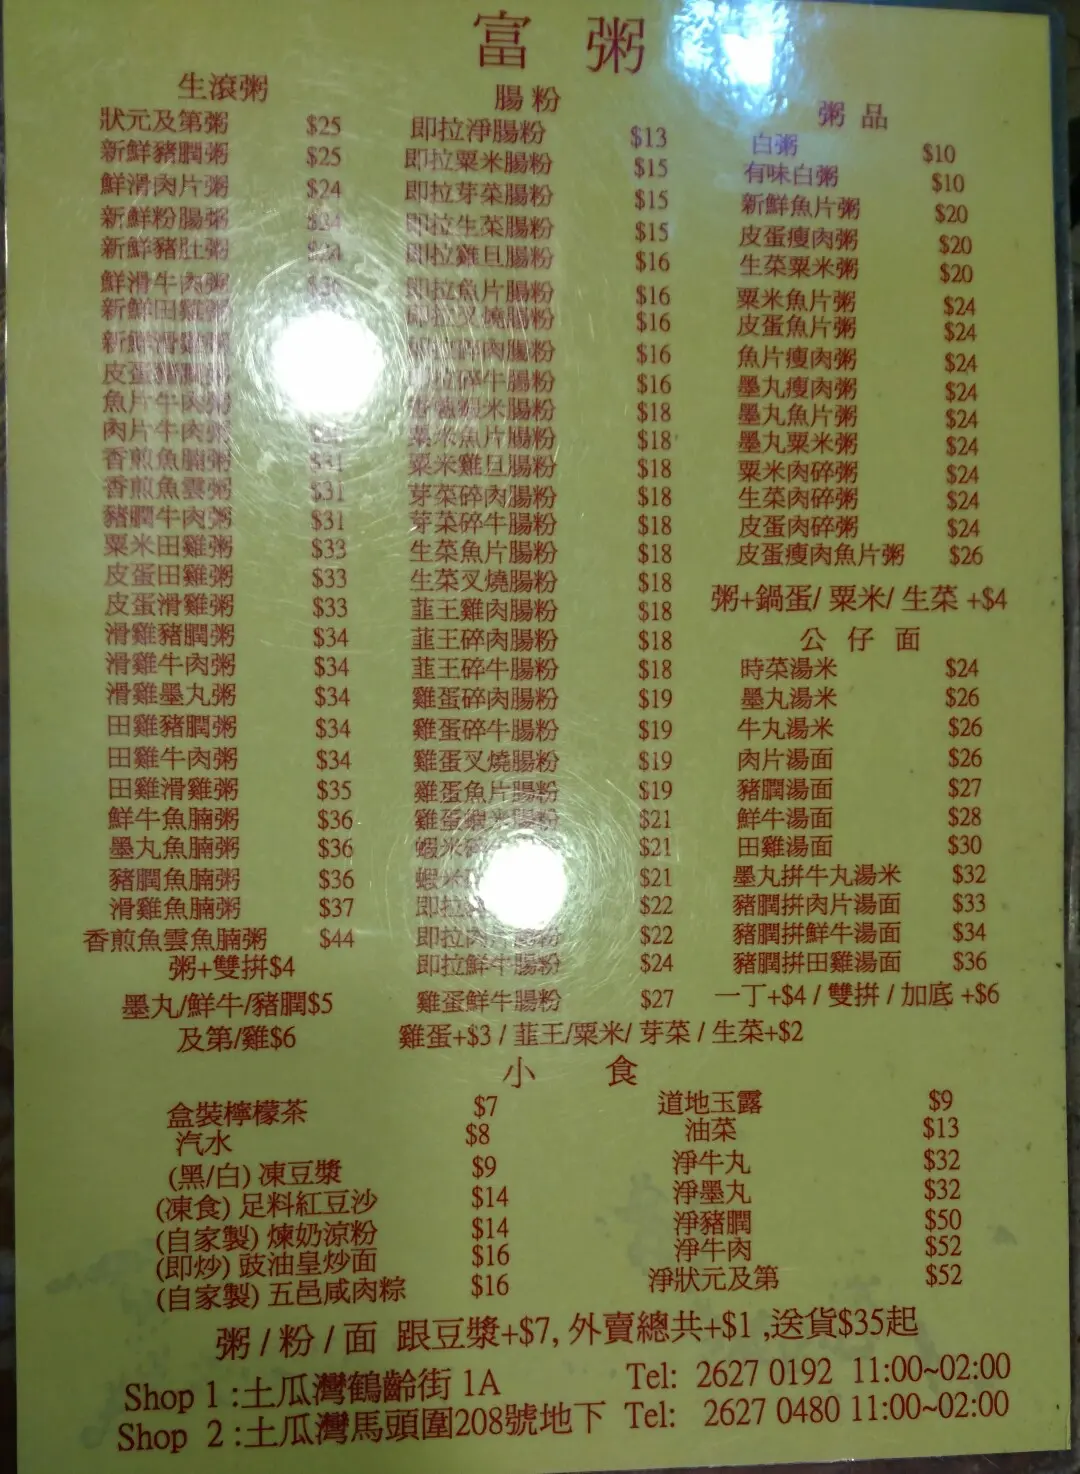 富 粥
生滾粥
狀元及第粥 $25
新鮮豬膶粥 $25
鮮滑肉片粥 $24
新鮮粉腸粥 $24
新鮮豬肚粥
鮮滑牛肉粥
新鮮田雞粥
新鮮滑雞粥
皮蛋
魚片牛肉粥
肉片牛肉粥
香煎魚腩粥 $31
香煎魚雲粥 $31
豬膶牛肉粥 $31
粟米田雞粥 $33
皮蛋田雞粥 $33
皮蛋滑雞粥 $33
滑雞豬膶粥 $34
滑雞牛肉粥 $34
滑雞墨丸粥 $34
田雞豬膶粥 $34
田雞牛肉粥 $34
田雞滑雞粥 $35
鮮牛魚腩粥 $36
墨丸魚腩粥 $36
豬膶魚腩粥 $36
滑雞魚腩粥 $37
香煎魚雲魚腩粥 $44
粥+雙拼$4
墨丸/鮮牛/豬膶$5
及第/雞$6
腸粉
即拉淨腸粉 $13
即拉粟米腸粉 $15
即拉芽菜腸粉 $15
即拉生菜腸粉 $15
即拉雞旦腸粉 $16
即拉魚片腸粉 $16
即拉叉燒腸粉 $16
即拉碎肉腸粉 $16
即拉碎牛腸粉 $16
蝦米腸粉 $18
粟米魚片腸粉 $18
粟米雞旦腸粉 $18
芽菜碎肉腸粉 $18
芽菜碎牛腸粉 $18
生菜魚片腸粉 $18
生菜叉燒腸粉 $18
韮王雞肉腸粉 $18
韮王碎肉腸粉 $18
韮王碎牛腸粉 $18
雞蛋碎肉腸粉 $19
雞蛋碎牛腸粉 $19
雞蛋叉燒腸粉 $19
雞蛋魚片腸粉 $19
雞蛋蝦米腸粉 $21
蝦米 $21
蝦米 $21
即拉 $22
即拉肉片腸粉 $22
即拉鮮牛腸粉 $24
雞蛋鮮牛腸粉 $27
雞蛋+$3 / 韮王/粟米/ 芽菜 / 生菜+$2
粥 品
白粥 $10
有味白粥 $10
新鮮魚片粥 $20
皮蛋瘦肉粥 $20
生菜粟米粥 $20
粟米魚片粥 $24
皮蛋魚片粥 $24
魚片瘦肉粥 $24
墨丸瘦肉粥 $24
墨丸魚片粥 $24
墨丸粟米粥 $24
粟米肉碎粥 $24
生菜肉碎粥 $24
皮蛋肉碎粥 $24
皮蛋瘦肉魚片粥 $26
粥+鍋蛋/ 粟米/ 生菜 +$4
公 仔 面
時菜湯米 $24
墨丸湯米 $26
牛丸湯米 $26
肉片湯面 $26
豬膶湯面 $27
鮮牛湯面 $28
田雞湯面 $30
墨丸拼牛丸湯米 $32
豬膶拼肉片湯面 $33
豬膶拼鮮牛湯面 $34
豬膶拼田雞湯面 $36
一丁+$4 / 雙拼 / 加底 +$6
小 食
盒裝檸檬茶 $7
汽水 $8
(黑/白) 凍豆漿 $9
(凍食) 足料紅豆沙 $14
(自家製) 煉奶涼粉 $14
(即炒) 豉油皇炒面 $16
(自家製) 五邑咸肉粽 $16
道地玉露 $9
油菜 $13
淨牛丸 $32
淨墨丸 $32
淨豬膶 $50
淨牛肉 $52
淨狀元及第 $52
粥 / 粉 / 面 跟豆漿+$7, 外賣總共+$1 ,送貨$35起
Shop 1 :土瓜灣鶴齡街 1A Tel: 2627 0192 11:00~02:00
Shop 2 :土瓜灣馬頭圍208號地下 Tel: 2627 0480 11:00~02:00